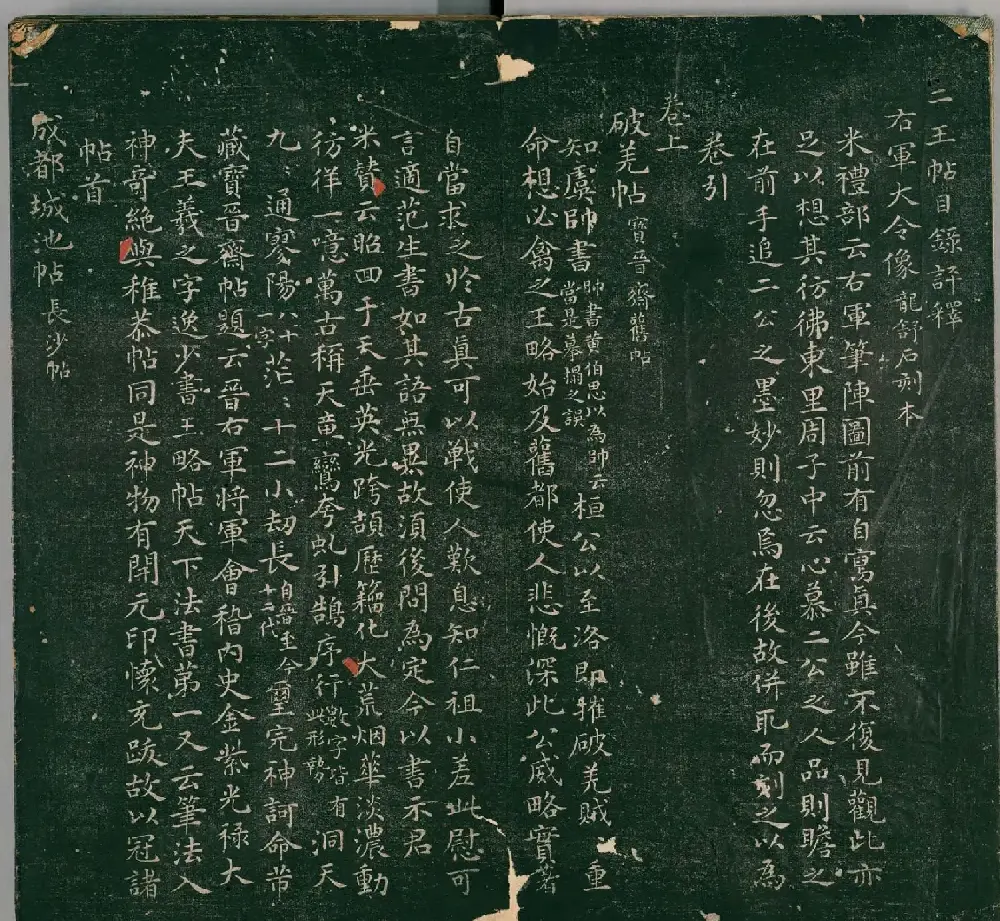 二王帖目錄評釋
右軍大令像 龍舒石刻本
米禮部云右軍筆陣圖前有自寫真今雖不復見觀此亦
足以想其彷彿東里周子中云心慕二公之人品則瞻之
在前手追二公之墨妙則忽焉在後故併取而刻之以為
卷引
卷上
破羌帖 寶晉齋舊帖
知虞帥書 帥書黃伯思以為帥云當是摹搨之誤 桓公以至洛即摧破羌賊 重
命想必禽之王略始及舊都使人悲慨深此公威略實著
自當求之於古真可以戰使人歎息知仁祖小差此慰可
言適范生書如其語無異故須後問為定今以書示君
米贊云昭回于天垂英光跨頡歷籀化大荒烟華淡濃動
彷徉一噫萬古稱天章鸞夸虬引鵠序行 數字皆此形勢 有洞天
九〻通寥陽 八十一字 茫〻十二小劫長 自晉至今十二代 璽完神訶命芾
藏寶晉齋帖題云晉右軍將軍會稽內史金紫光祿大
夫王羲之字逸少書王略帖天下法書第一又云筆法入
神奇絕與稚恭帖同是神物有開元印懷充跋故以冠諸
帖首
成都城池帖 長沙帖